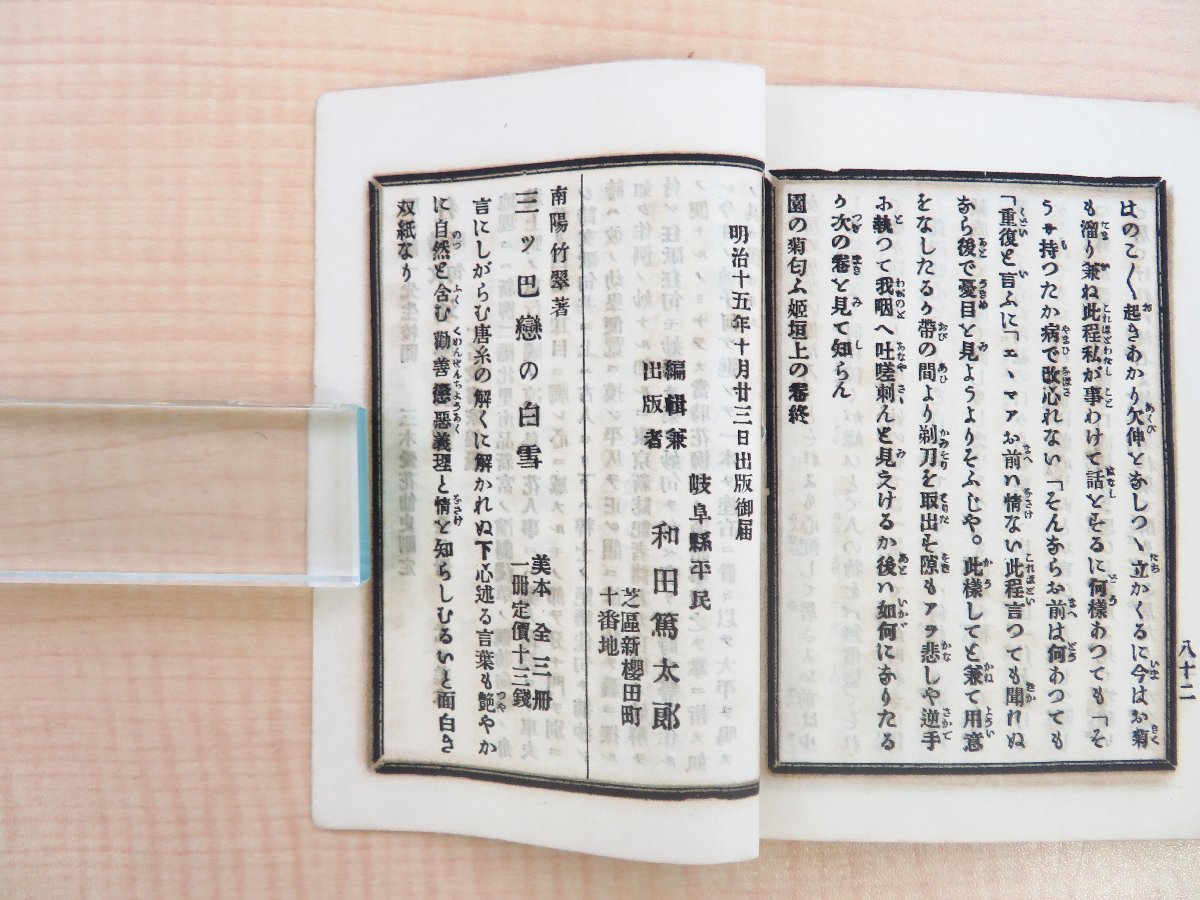 八十二
はのこ〱起きあかり欠伸とをしつゝ立かくるに今はお菊
も溜り兼ね此程私が事わけて話とをるに何様あつても「そ
うサ持つたか病で改心れない「そんなら お前は何あつても
「重復と言ふに「エヽマアお前ハ情ない此程言つても聞れぬ
なら後で憂目と見ようよりそふじや。此樣してと兼て用意
をなしたるか帶の間より剃刀を取出そ隙もアラ悲しや逆手
お執つて我咽へ吐嗟刺んと見えけるか後ハ如何になりたる
か次の卷と見て知らん
園の菊匂ふ姫垣上の卷終
明治十五年十月廿三日出版御届
岐阜縣平民
編輯兼
出版者
和田篤太郎
芝區新櫻田町
十番地
南陽竹翠著
三ッ巴戀の白雪
美本全三冊
一冊定價十三錢
言にしがらむ唐糸の解くに解かれぬ下心述る言葉も艶やか
に自然と含む勸善懲惡義理と情と知らしむるいと面白き
双紙なり